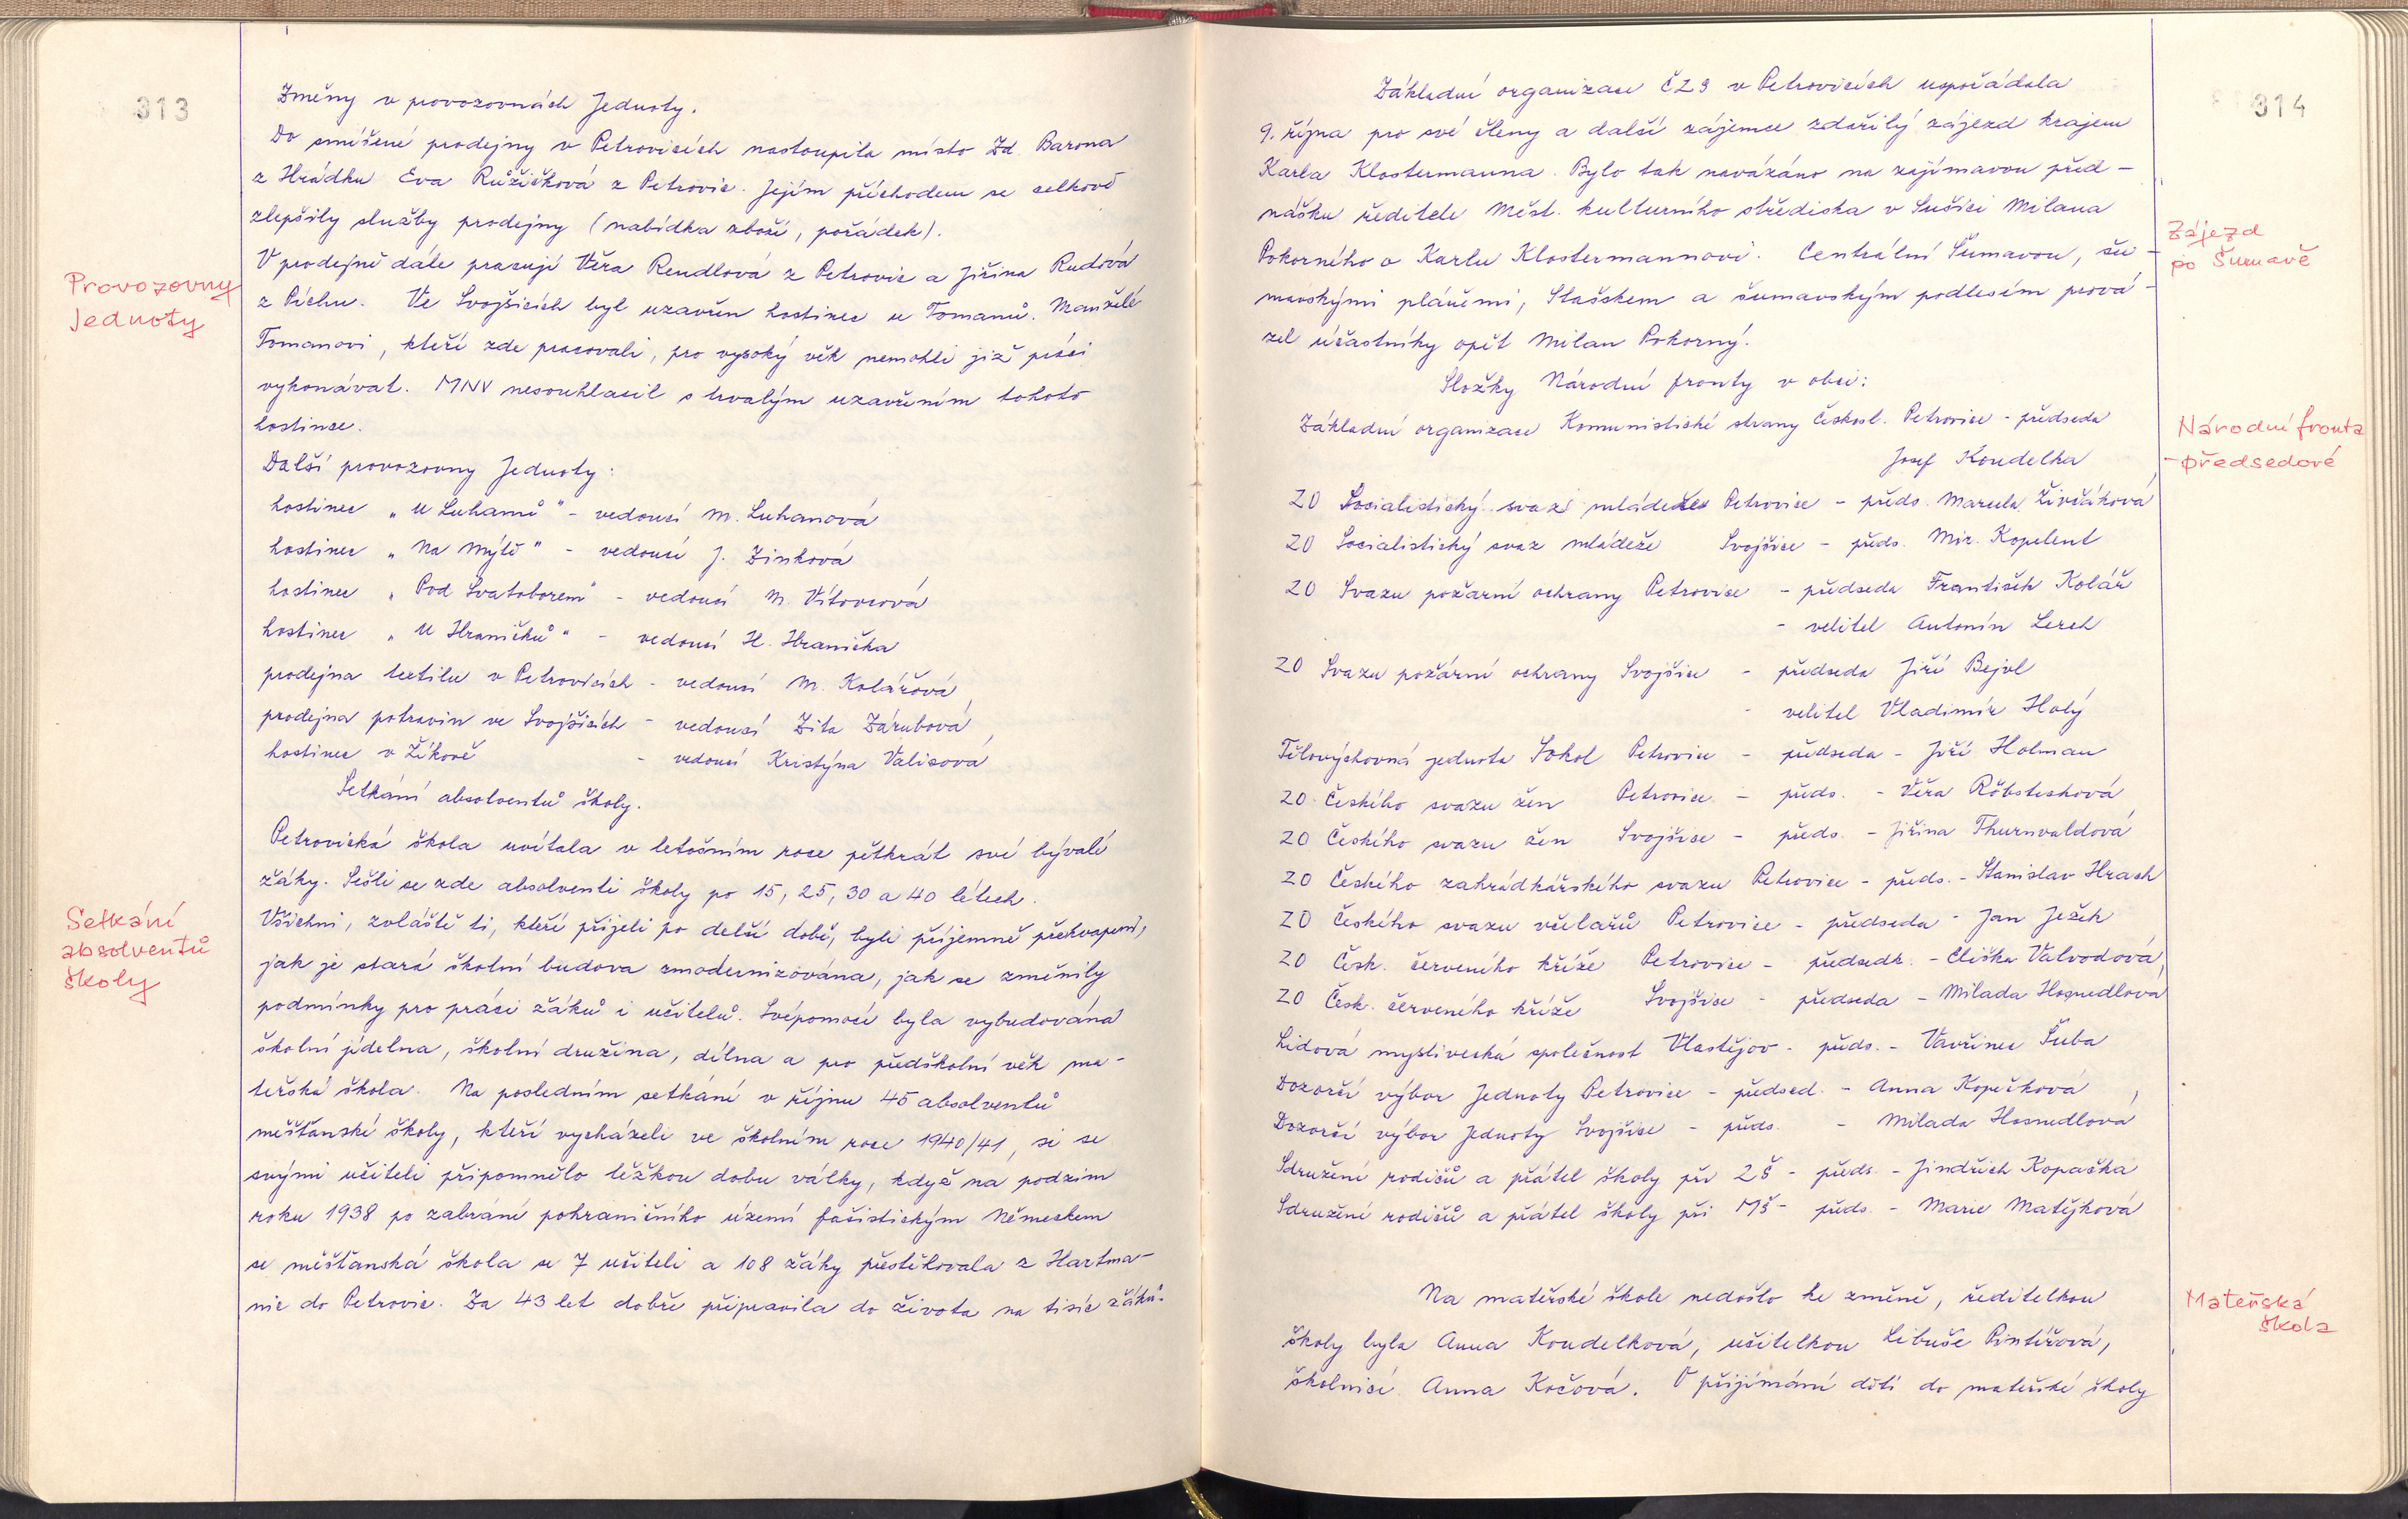 313
Změny v provozovnách Jednoty.
Do smíšené prodejny v Petrovicích nastoupila místo Zd. Barona
z Hrádku Eva Růžičková z Petrovic. Jejím příchodem se celkově
zlepšily služby prodejny (nabídka zboží, pořádek).
V prodejně dále pracují Věra Rendlová z Petrovic a Jiřina Rudová
z Píchu. Ve Svojšicích byl uzavřen hostinec u Tomanů. Manželé
Tomanovi, kteří zde pracovali, pro vysoký věk nemohli již práci
vykonávat. MNV nesouhlasil s trvalým uzavřením tohoto
hostince.
Provozovny
Jednoty
Další provozovny Jednoty:
hostinec „U Luhanů" - vedoucí M. Luhanová
hostinec „Na Mýtě" - vedoucí J. Zinková
hostinec „Pod Svatoborem" - vedoucí M. Vítovcová
hostinec „U Hraničků" - vedoucí H. Hranička
prodejna textilu v Petrovicích - vedoucí M. Kolářová
prodejna potravin ve Svojšicích - vedoucí Zita Zárubová
hostinec v Žíkově - vedoucí Kristýna Valisová
Setkání absolventů školy.
Petrovická škola uvítala v letošním roce pětkrát své bývalé
žáky. Sešli se zde absolventi školy po 15, 25, 30 a 40 létech.
Všichni, zvláště ti, kteří přijeli po delší době, byli příjemně překvapeni,
jak je stará školní budova zmodernizována, jak se změnily
podmínky pro práci žáků i učitelů. Svépomocí byla vybudována
školní jídelna, školní družina, dílna a pro předškolní věk ma-
teřská škola. Na posledním setkání v říjnu 45 absolventů
měšťanské školy, kteří vycházeli ve školním roce 1940/41, si se
svými učiteli připomnělo těžkou dobu války, když na podzim
roku 1938 po zabrání pohraničního území fašistickým Německem
se měšťanská škola se 7 učiteli a 108 žáky přestěhovala z Hartma-
nic do Petrovic. Za 43 let dobře připravila do života na tisíc žáků.
Setkání
absolventů
školy
314
Základní organizace ČZS v Petrovicích uspořádala
9. října pro své členy a další zájemce zdařilý zájezd krajem
Karla Klostermanna. Bylo tak navázáno na zajímavou před-
nášku ředitele Měst. kulturního střediska v Sušici Milana
Pokorného o Karlu Klostermannovi. Centrální Šumavou, šu-
mavskými pláněmi, Stašskem a šumavským podlesím prová-
zel účastníky opět Milan Pokorný.
Zájezd
po Šumavě
Složky Národní fronty v obci:
Základní organizace Komunistické strany Českosl. Petrovice - předseda
Josef Koudelka
Národní fronta
- předsedové
ZO Socialistický svaz mládeže Petrovice - předs. Marcela Živčáková
ZO Socialistický svaz mládeže Svojšice - předs. Mir. Kopelent
ZO Svazu požární ochrany Petrovice - předseda František Kolář
- velitel Antonín Lerch
ZO Svazu požární ochrany Svojšice - předseda Jiří Bejvl
- velitel Vladimír Holý
Tělovýchovná jednota Sokol Petrovice - předseda - Jiří Holman
ZO Českého svazu žen Petrovice - předs. - Věra Röbsteková
ZO Českého svazu žen Svojšice - předs. - Jiřina Thurnvaldová
ZO Českého zahrádkářského svazu Petrovice - předs. - Stanislav Hrach
ZO Českého svazu včelařů Petrovice - předseda - Jan Ježek
ZO Česk. červeného kříže Petrovice - předsedk. - Eliška Valvodová
ZO Česk. červeného kříže Svojšice - předseda - Milada Hosnedlová
Lidová myslivecká společnost Vlastějov - předs. - Vavřinec Šuba
Dozorčí výbor Jednoty Petrovice - předsed. - Anna Kopečková
Dozorčí výbor Jednoty Svojšice - předs. - Milada Hosnedlová
Sdružení rodičů a přátel školy při ZŠ - předs. - Jindřich Kopačka
Sdružení rodičů a přátel školy při MŠ - předs. - Marie Matějková
Na mateřské škole nedošlo ke změně, ředitelkou
školy byla Anna Koudelková, učitelkou Libuše Pintířová,
školnicí Anna Kočová. O přijímání dětí do mateřské školy
Mateřská
škola